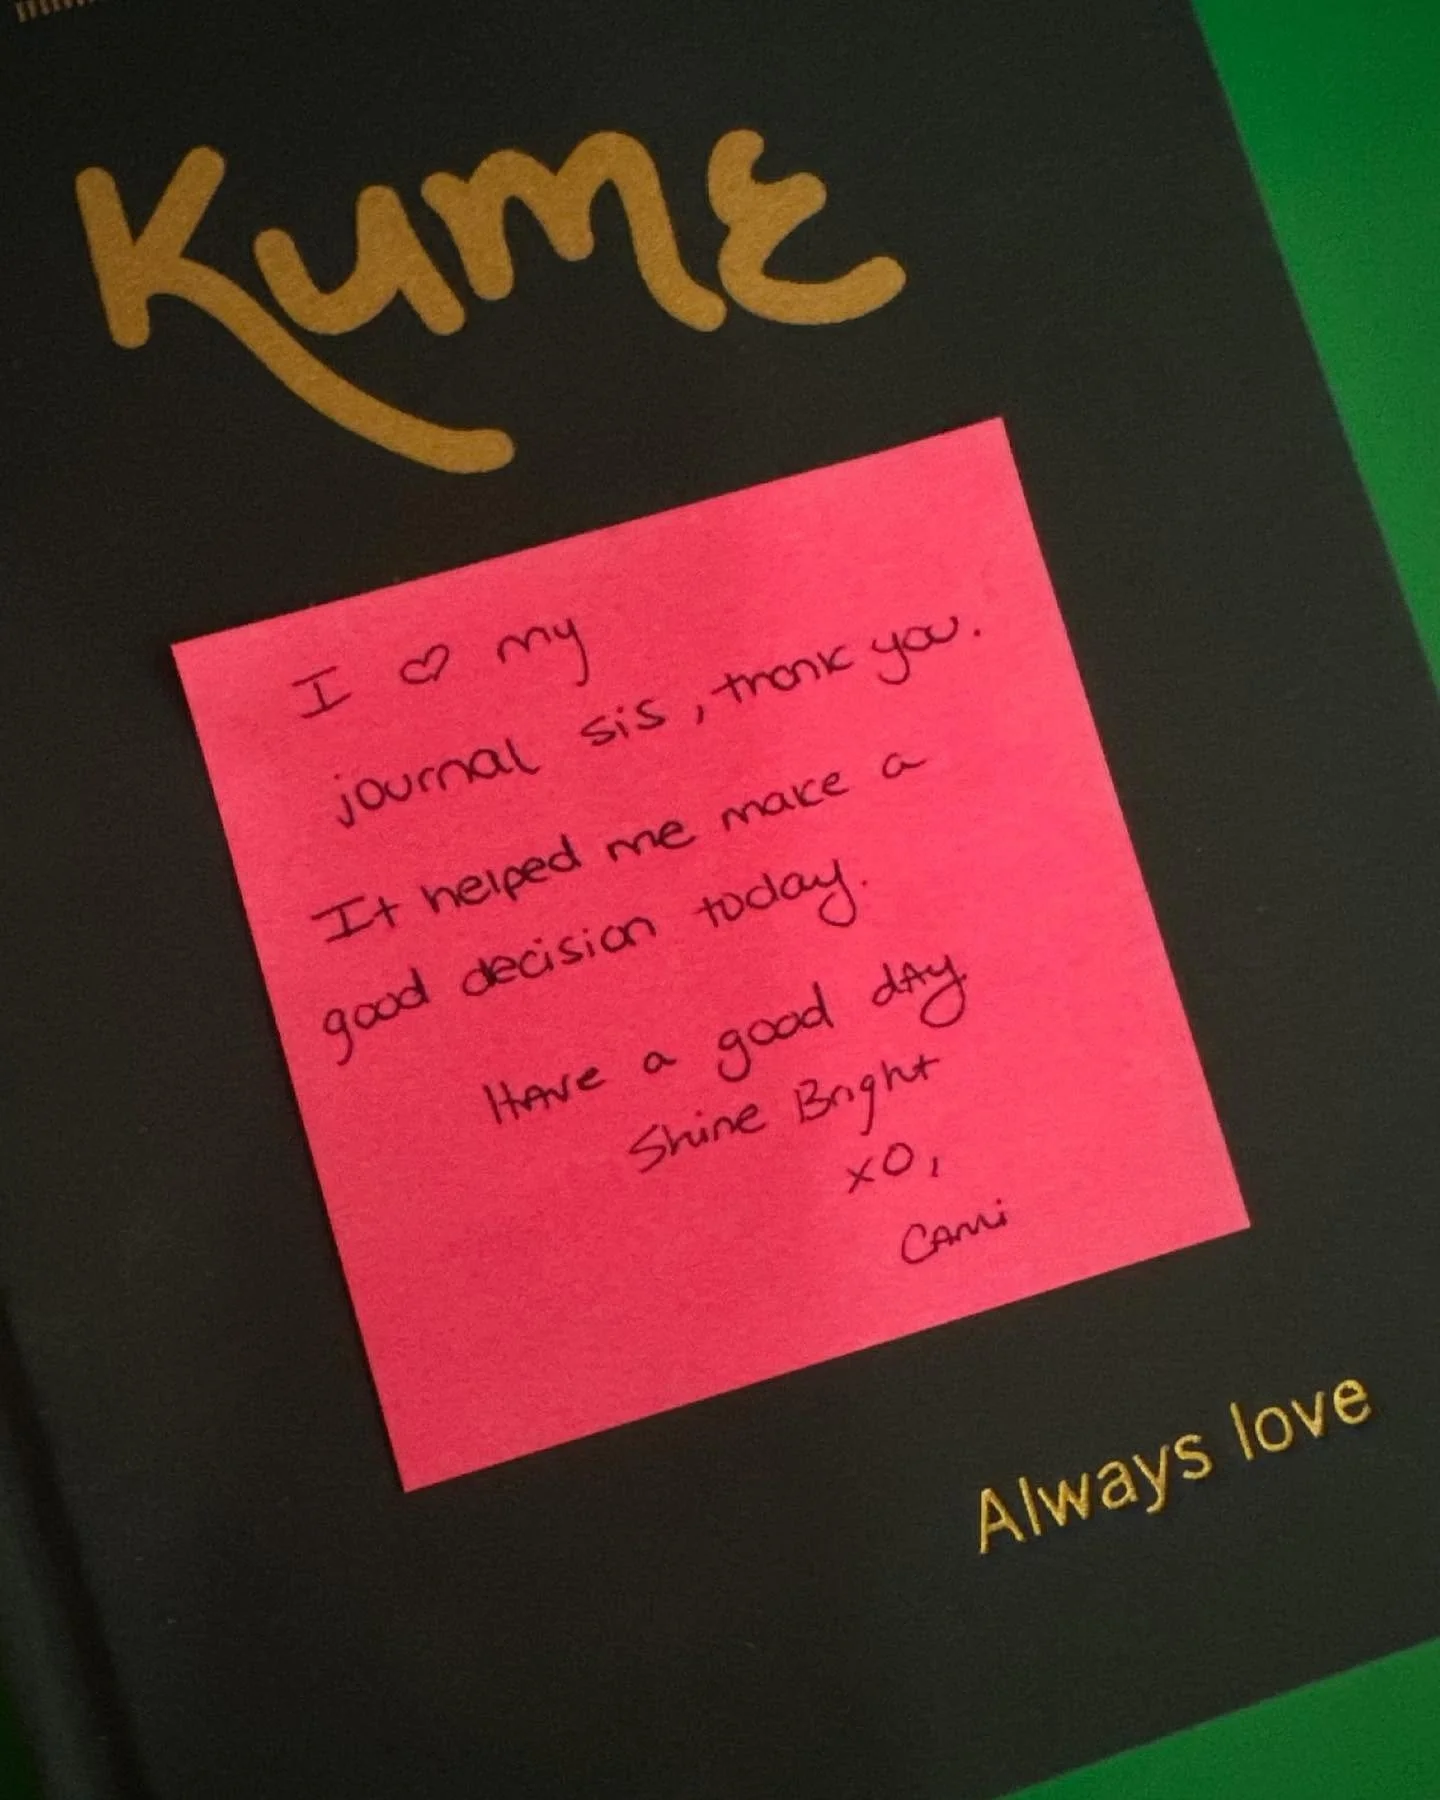 Kume
I ♡ my
journal sis, thank you.
It helped me make a
good decision today.
Have a good day.
Shine Bright
xo,
Cami
Always love